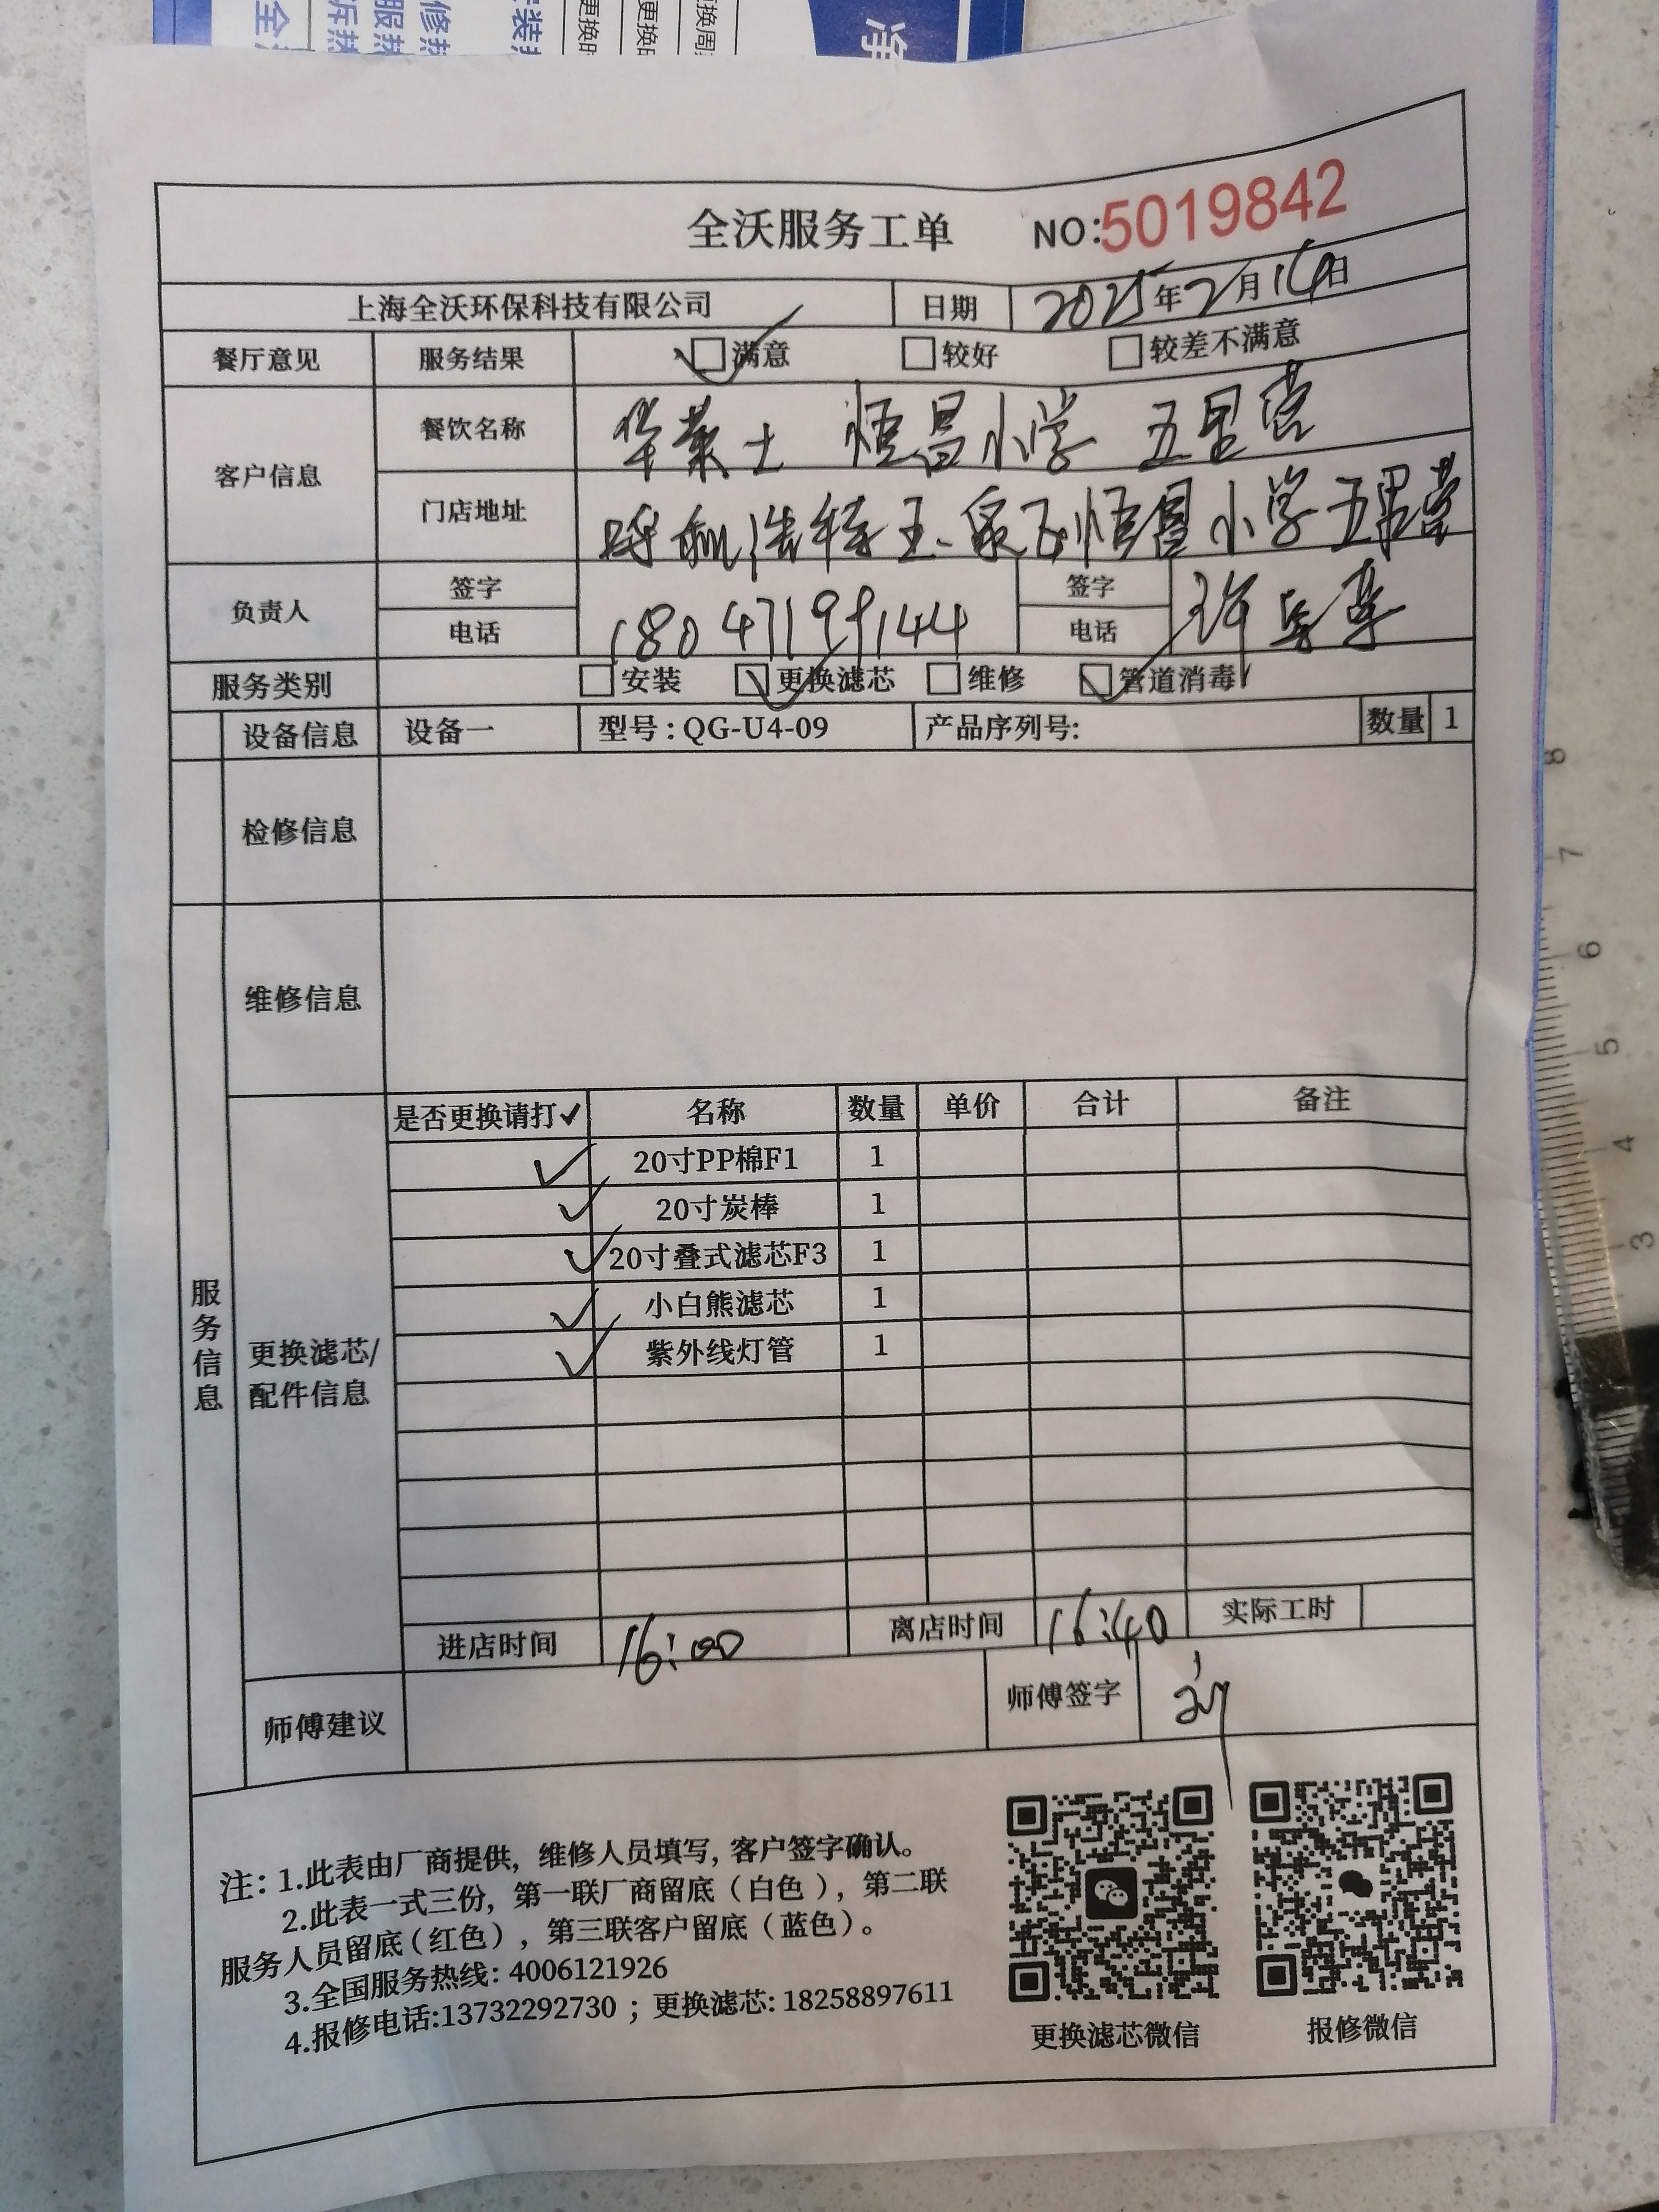 全沃服务工单 NO:5019842
上海全沃环保科技有限公司 日期 2025年2月14日
餐厅意见 服务结果 满意 较好 较差不满意
客户信息
餐饮名称 华莱士 恒昌小学 五里营
门店地址 呼和浩特玉泉区恒昌小学五里营
负责人 签字 签字
电话 18047199144 电话
服务类别 安装 更换滤芯 维修 管道消毒
设备信息 设备一 型号：QG-U4-09 产品序列号: 数量 1
检修信息
维修信息
服务信息
更换滤芯/
配件信息
是否更换请打✓ 名称 数量 单价 合计 备注
✓ 20寸PP棉F1 1
✓ 20寸炭棒 1
✓ 20寸叠式滤芯F3 1
✓ 小白熊滤芯 1
✓ 紫外线灯管 1
进店时间 16:00 离店时间 16:40 实际工时
师傅建议 师傅签字
注：1.此表由厂商提供，维修人员填写，客户签字确认。
2.此表一式三份，第一联厂商留底（白色），第二联
服务人员留底（红色），第三联客户留底（蓝色）。
3.全国服务热线：4006121926
4.报修电话:13732292730；更换滤芯: 18258897611
更换滤芯微信 报修微信
8
7
6
5
4
3